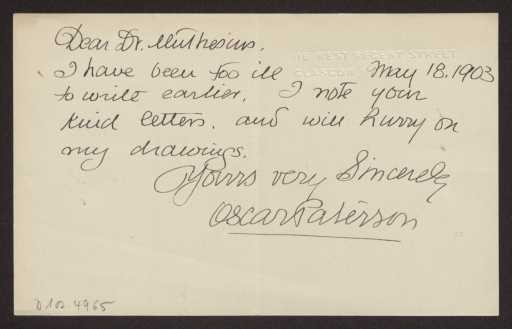 Dear Dr. Muthesius.
118 WEST REGENT STREET
GLASGOW
May 18. 1903
I have been too ill
to write earlier. I note your
kind letters. and will hurry on
my drawings.
Yours very Sincerely
Oscar Paterson
D 102 4965